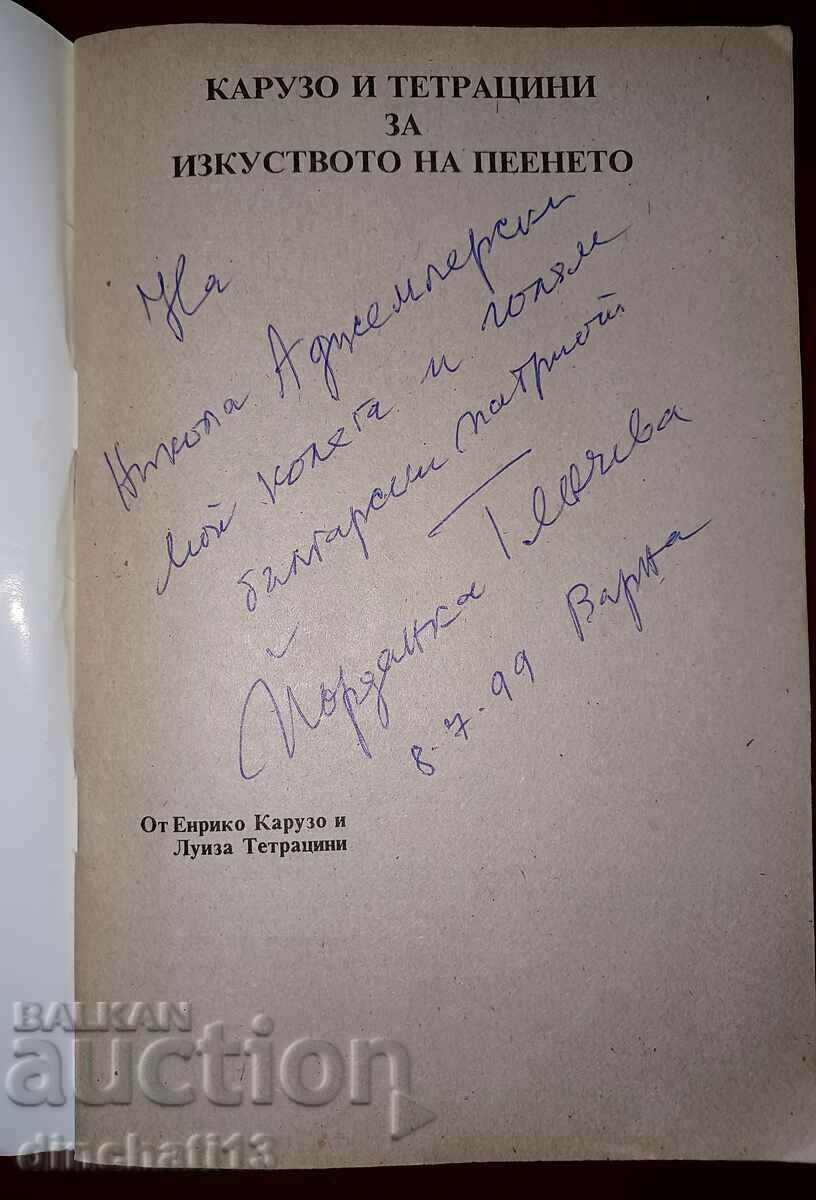 КАРУЗО И ТЕТРАЦИНИ
ЗА
ИЗКУСТВОТО НА ПЕЕНЕТО
На
Никола Аджемлерски
мой колега и голям
български патриот.
Йорданка
8.7.99 Варна
От Енрико Карузо и
Луиза Тетрацини
BALKAN
auction
dinchati13